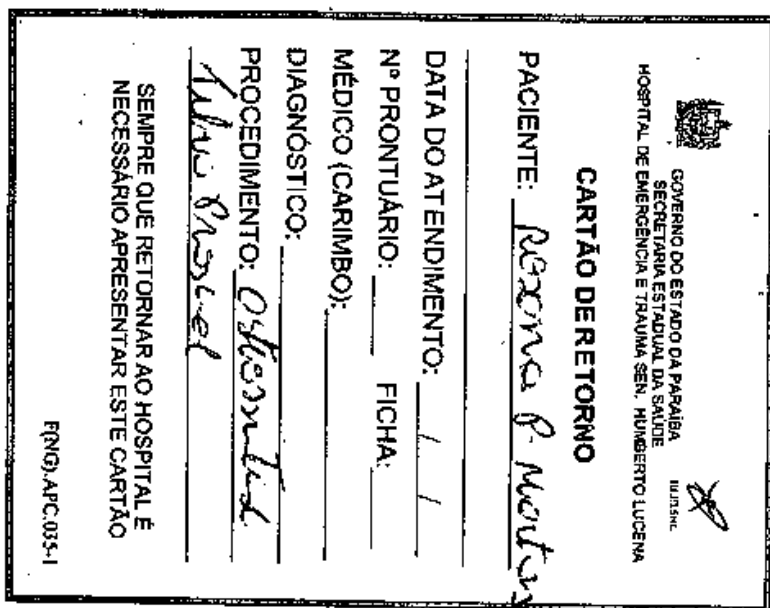 GOVERNO DO ESTADO DA PARAÍBA
SECRETARIA ESTADUAL DA SAÚDE
HOSPITAL DE EMERGÊNCIA E TRAUMA SEN. HUMBERTO LUCENA
CARTÃO DE RETORNO
PACIENTE: P. Martins
DATA DO ATENDIMENTO: / /
Nº PRONTUÁRIO: FICHA:
MÉDICO (CARIMBO):
DIAGNÓSTICO:
PROCEDIMENTO:
SEMPRE QUE RETORNAR AO HOSPITAL É
NECESSÁRIO APRESENTAR ESTE CARTÃO
F(NG).APC.035-1